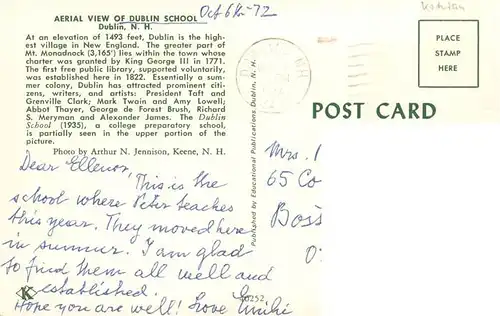 AERIAL VIEW OF DUBLIN SCHOOL
Oct 6th - 72
Dublin, N. H.
At an elevation of 1493 feet, Dublin is the high-
est village in New England. The greater part of
Mt. Monadnock (3,165') lies within the town whose
charter was granted by King George III in 1771.
The first free public library, supported voluntarily,
was established here in 1822. Essentially a sum-
mer colony, Dublin has attracted prominent citi-
zens, writers, and artists: President Taft and
Grenville Clark; Mark Twain and Amy Lowell;
Abbot Thayer, George de Forest Brush, Richard
S. Meryman and Alexander James. The Dublin
School (1935), a college preparatory school,
is partially seen in the upper portion of the
picture.
Photo by Arthur N. Jennison, Keene, N. H.
Dear Ellenor,
This is the
school where Peter teaches
this year. They moved here
in summer. I am glad
to find them all well and
established.
Hope you are well! Love Emihi
K
40252
Published by Educational Publications Dublin, N. H.
PLACE
STAMP
HERE
POST CARD
Mrs.
65 Co
Boss